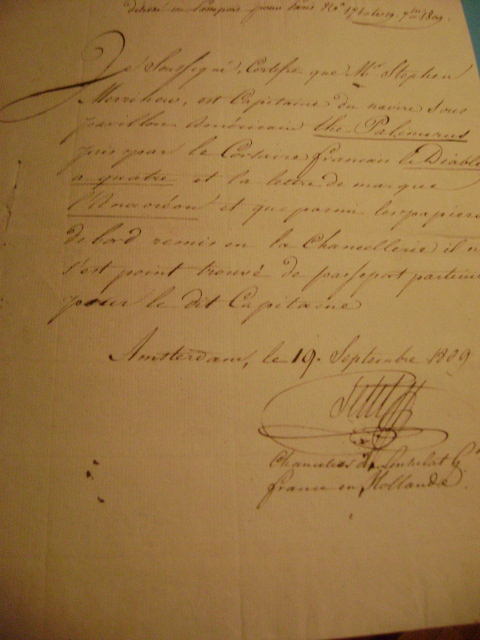 Je Soussigné, Certifie que Mr Stephen
Merrihew, est Capitaine du navire Sous
pavillon Américain the Palinurus
pris par le Corsaire français le Diable
a quatre et la lettre de marque
l'Anacréon et que parmi les papiers
de bord remis en la Chancellerie il n
s'est point trouvé de passeport particu
pour le dit Capitaine
Amsterdam, le 19. Septembre 1809
Chancelier du Consulat Gal
france en Hollande.